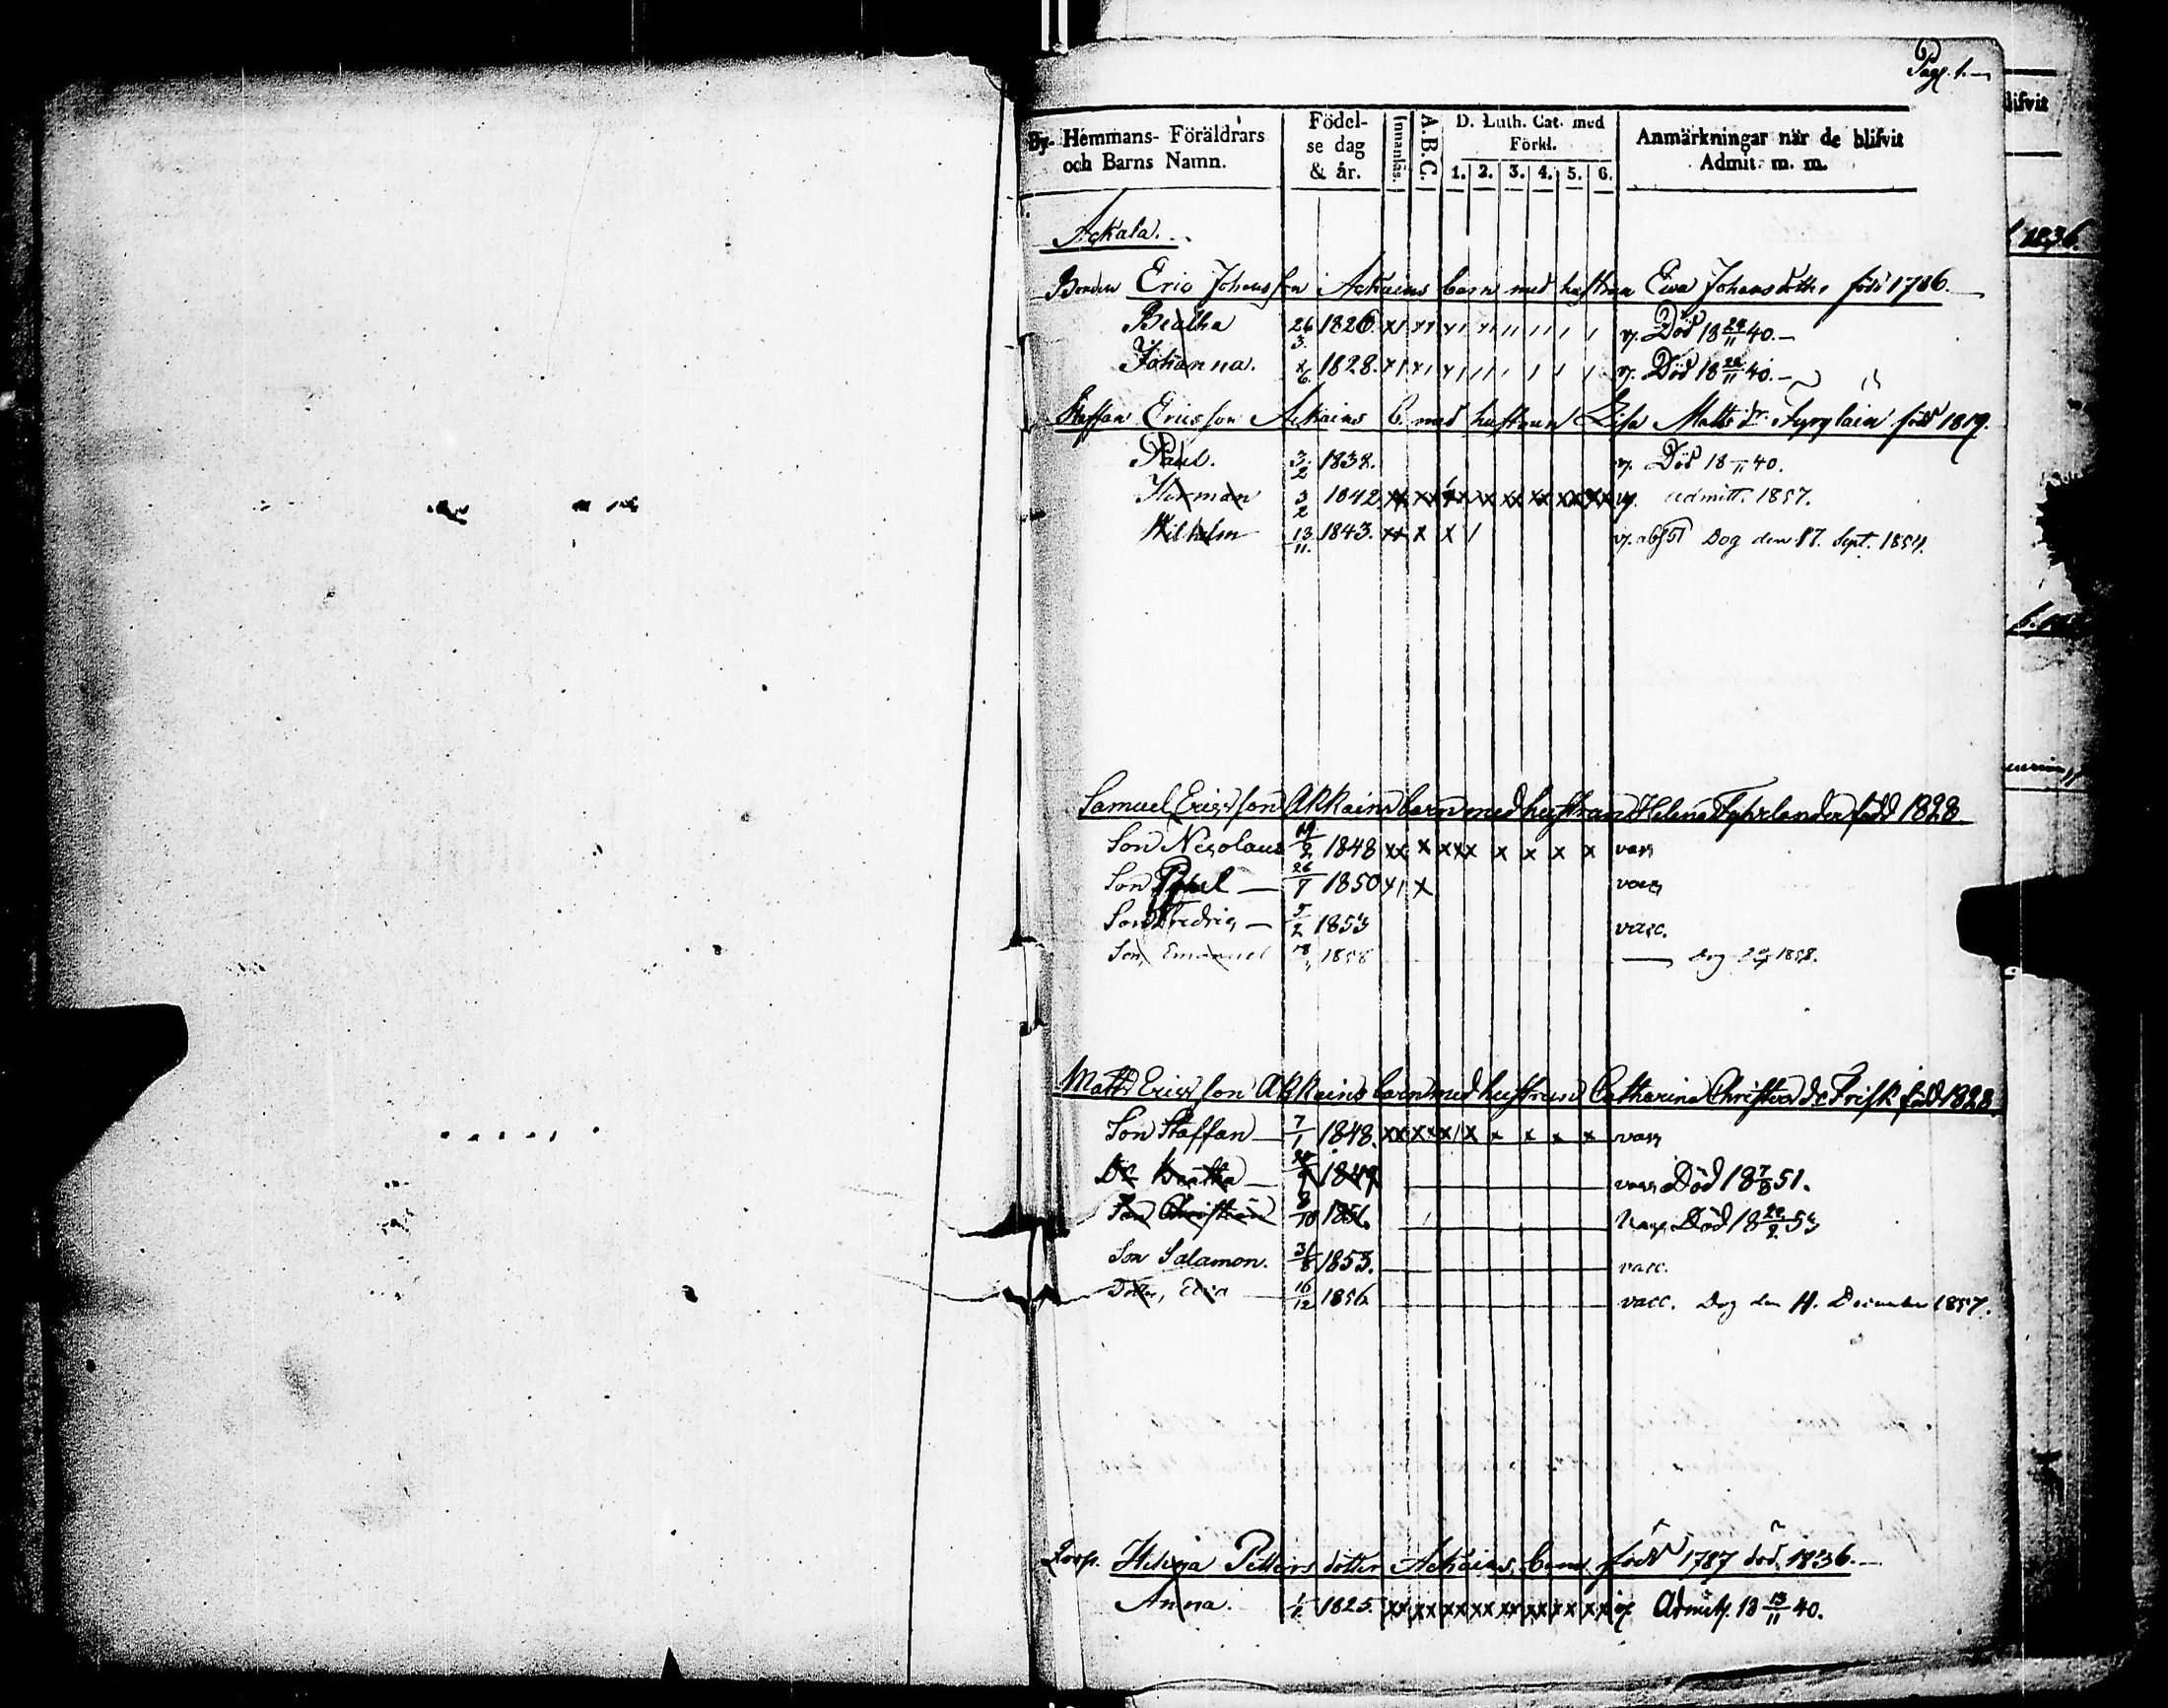 Pag. 1.
By- Hemmans- Föräldrars och Barns Namn. Födel-se dag & år. Innanläs. A.B.C. D. Luth. Cat. med Förkl. 1. 2. 3. 4. 5. 6. Anmärkningar när de blifvit Admit. m. m.
Ackala.
Bonden Eric Johansson Ackains barn med hustrun Ewa Johansdotter född 1786.
Beatha 26/3 1826. v. Död 18 /11 40.
Johanna. /6 1828. v. Död 18 /11 40.
Staffan Ericsson Ackains b. med hustrun Lisa Matts dr född 1819.
Paul. 3/2 1838. v. Död 18 /11 40.
Herman 3/2 1842 xx xx xx xx xx xx xx xx v. admitt. 1857.
Wilhelm 13/11. 1843. xx x x / v. Dog den 17. Sept. 1854.
Samuel Ericsson Akkains barn med hustrun Helena Fyhrlander född 1828
Son Nicolaus 19/2 1848 xx x xxx x x x x vacc
Son Paul 26/7 1850 x/ x vacc
Son Fredric 5/2 1853 vacc.
Son Emanuel 1858 Dog 1858.
Matts Ericsson Akkains barn med hustrun Catharina Christers dr Frisk född 1828
Son Staffan 7/1 1848. xx xx x/ x x x x x vacc
Dr Beatha 1849 vacc Död 18 7/8 51.
Son Christian 8/10 1851. vacc. Död 18 22/2 53
Son Salamon. 31/8 1853. vacc.
Dotter, Eva 16/12 1856 vacc. Dog den 11. December 1857.
Helena Petters dotter Ackains barn född 1787 död. 1836.
Anna. 1825. xx xx xx xx xx xx xx xx v. Admitt. 18 13/11 40.
blifvit
1836.